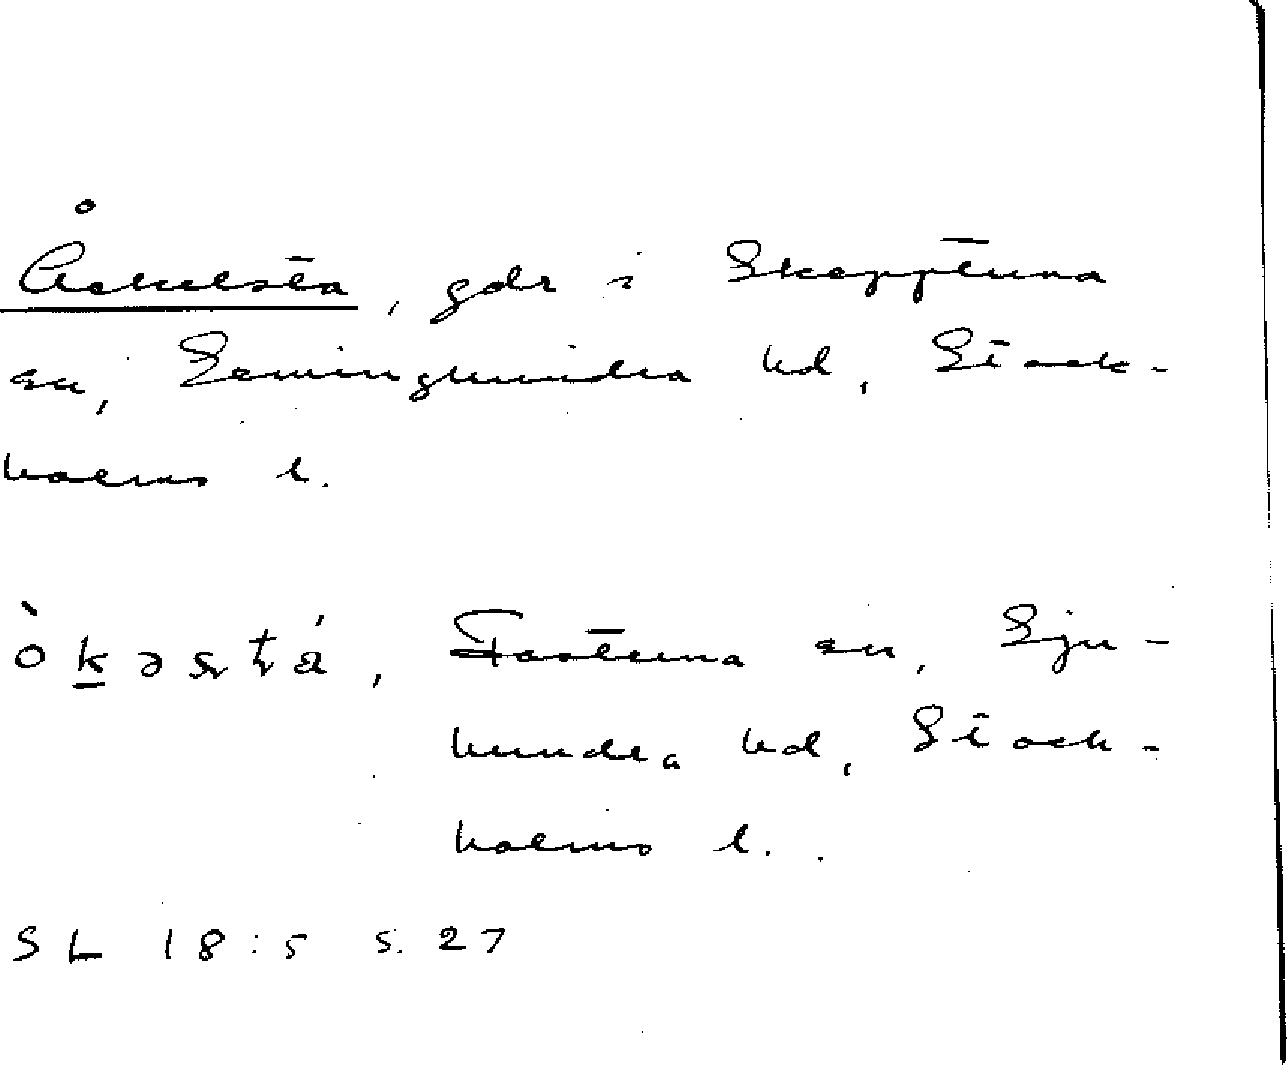 Åshelsta, gdr i Skepptuna
sn, Seminghundra hd, Stock-
holms l.
òkəstá, Fasterna sn, Sju-
hundra hd, Stock-
holms l.
SL 18:5 s. 27